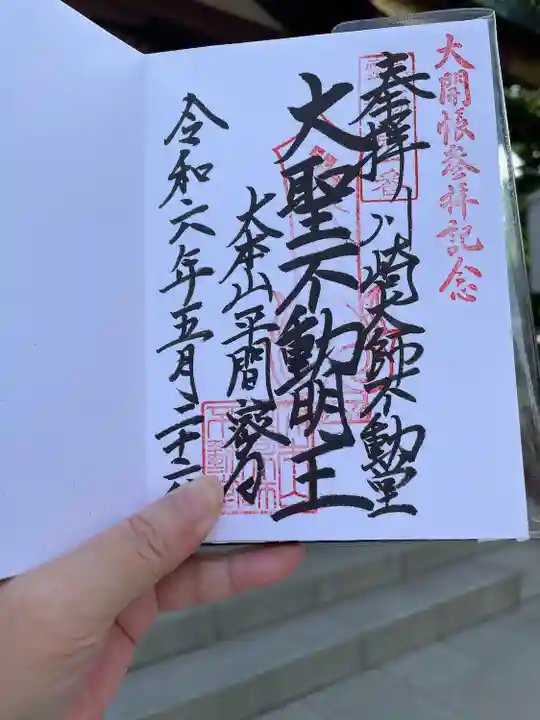 大開帳參拝記念
奉拝 川崎大師不動堂
大聖不動明王
大本山平間寺
令和六年五月二十六